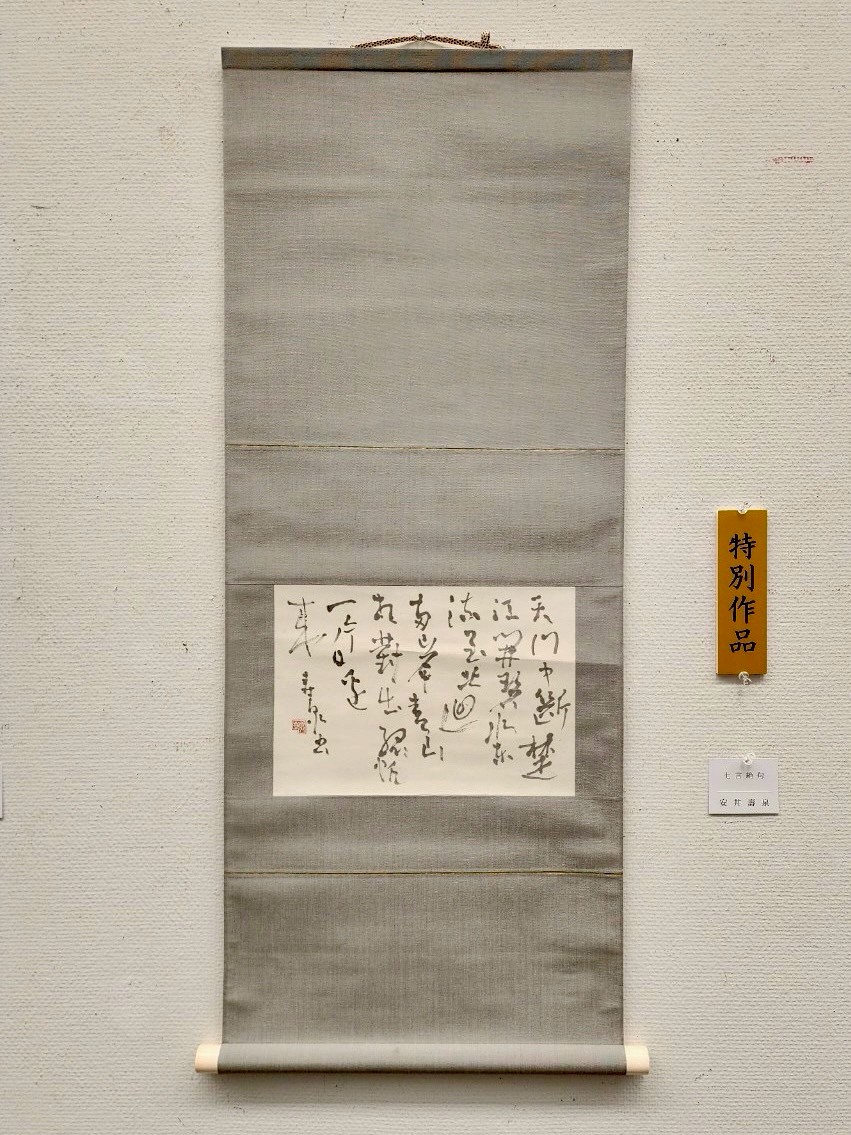 天門中斷楚
江開碧水東
流至此迴
兩岸青山
相對出孤帆
一片日邊
來
壽泉書
特別作品
七言絶句
安井壽泉